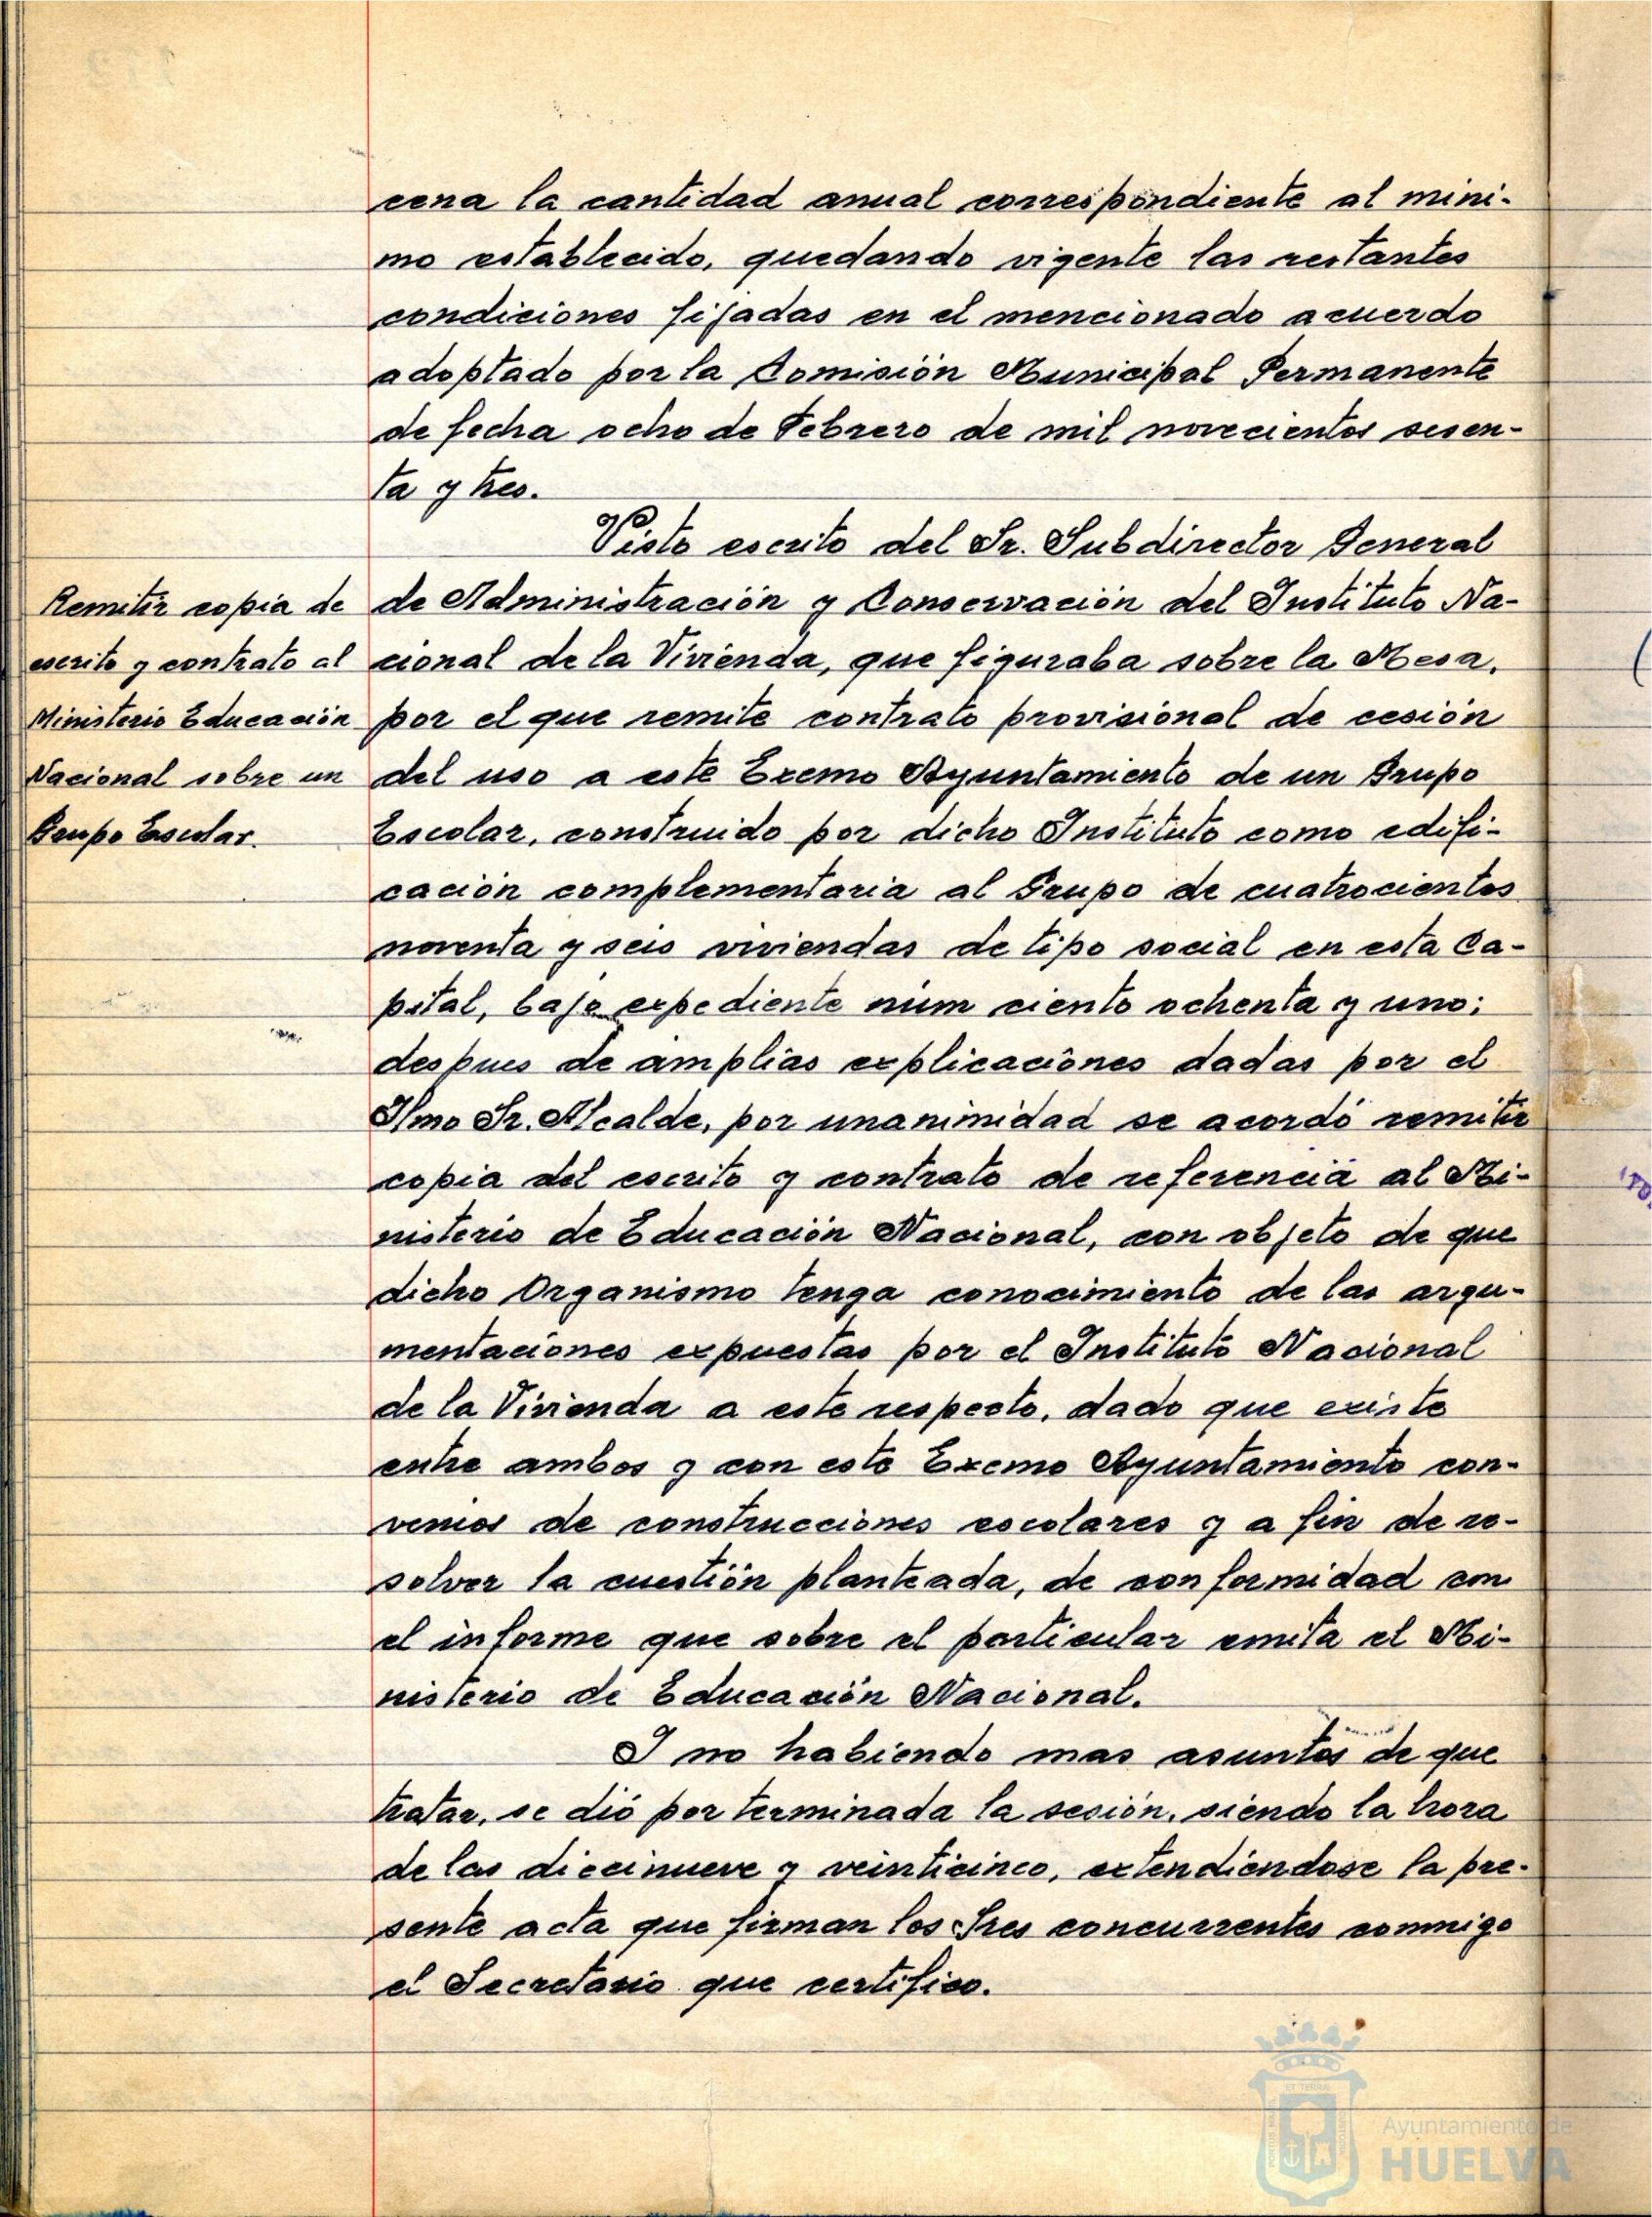 cena la cantidad anual correspondiente al mini-
mo establecido, quedando vigente las restantes
condiciones fijadas en el mencionado acuerdo
adoptado por la Comisión Municipal Permanente
de fecha ocho de Febrero de mil novecientos sesen-
ta y tres.
Visto escrito del Sr. Subdirector General
de Administración y Conservación del Instituto Na-
cional de la Vivienda, que figuraba sobre la Mesa,
por el que remite contrato provisional de cesión
del uso a este Excmo Ayuntamiento de un Grupo
Escolar, construido por dicho Instituto como edifi-
cación complementaria al Grupo de cuatrocientos
noventa y seis viviendas de tipo social en esta Ca-
pital, bajo expediente núm ciento ochenta y uno;
despues de amplias explicaciones dadas por el
Ilmo Sr. Alcalde, por unanimidad se acordó remitir
copia del escrito y contrato de referencia al Mi-
nisterio de Educación Nacional, con objeto de que
dicho Organismo tenga conocimiento de las argu-
mentaciones expuestas por el Instituto Nacional
de la Vivienda a este respecto, dado que existe
entre ambos y con este Excmo Ayuntamiento con-
venios de construcciones escolares y a fin de re-
solver la cuestión planteada, de conformidad con
el informe que sobre el particular emita el Mi-
nisterio de Educación Nacional.
I no habiendo mas asuntos de que
tratar, se dió por terminada la sesión, siendo la hora
de las diecinueve y veinticinco, extendiendose la pre-
sente acta que firman los Sres concurrentes conmigo
el Secretario que certifico.
Remitir copia de
escrito y contrato al
Ministerio Educación
Nacional sobre un
Grupo Escolar.
Ayuntamiento de
HUELVA